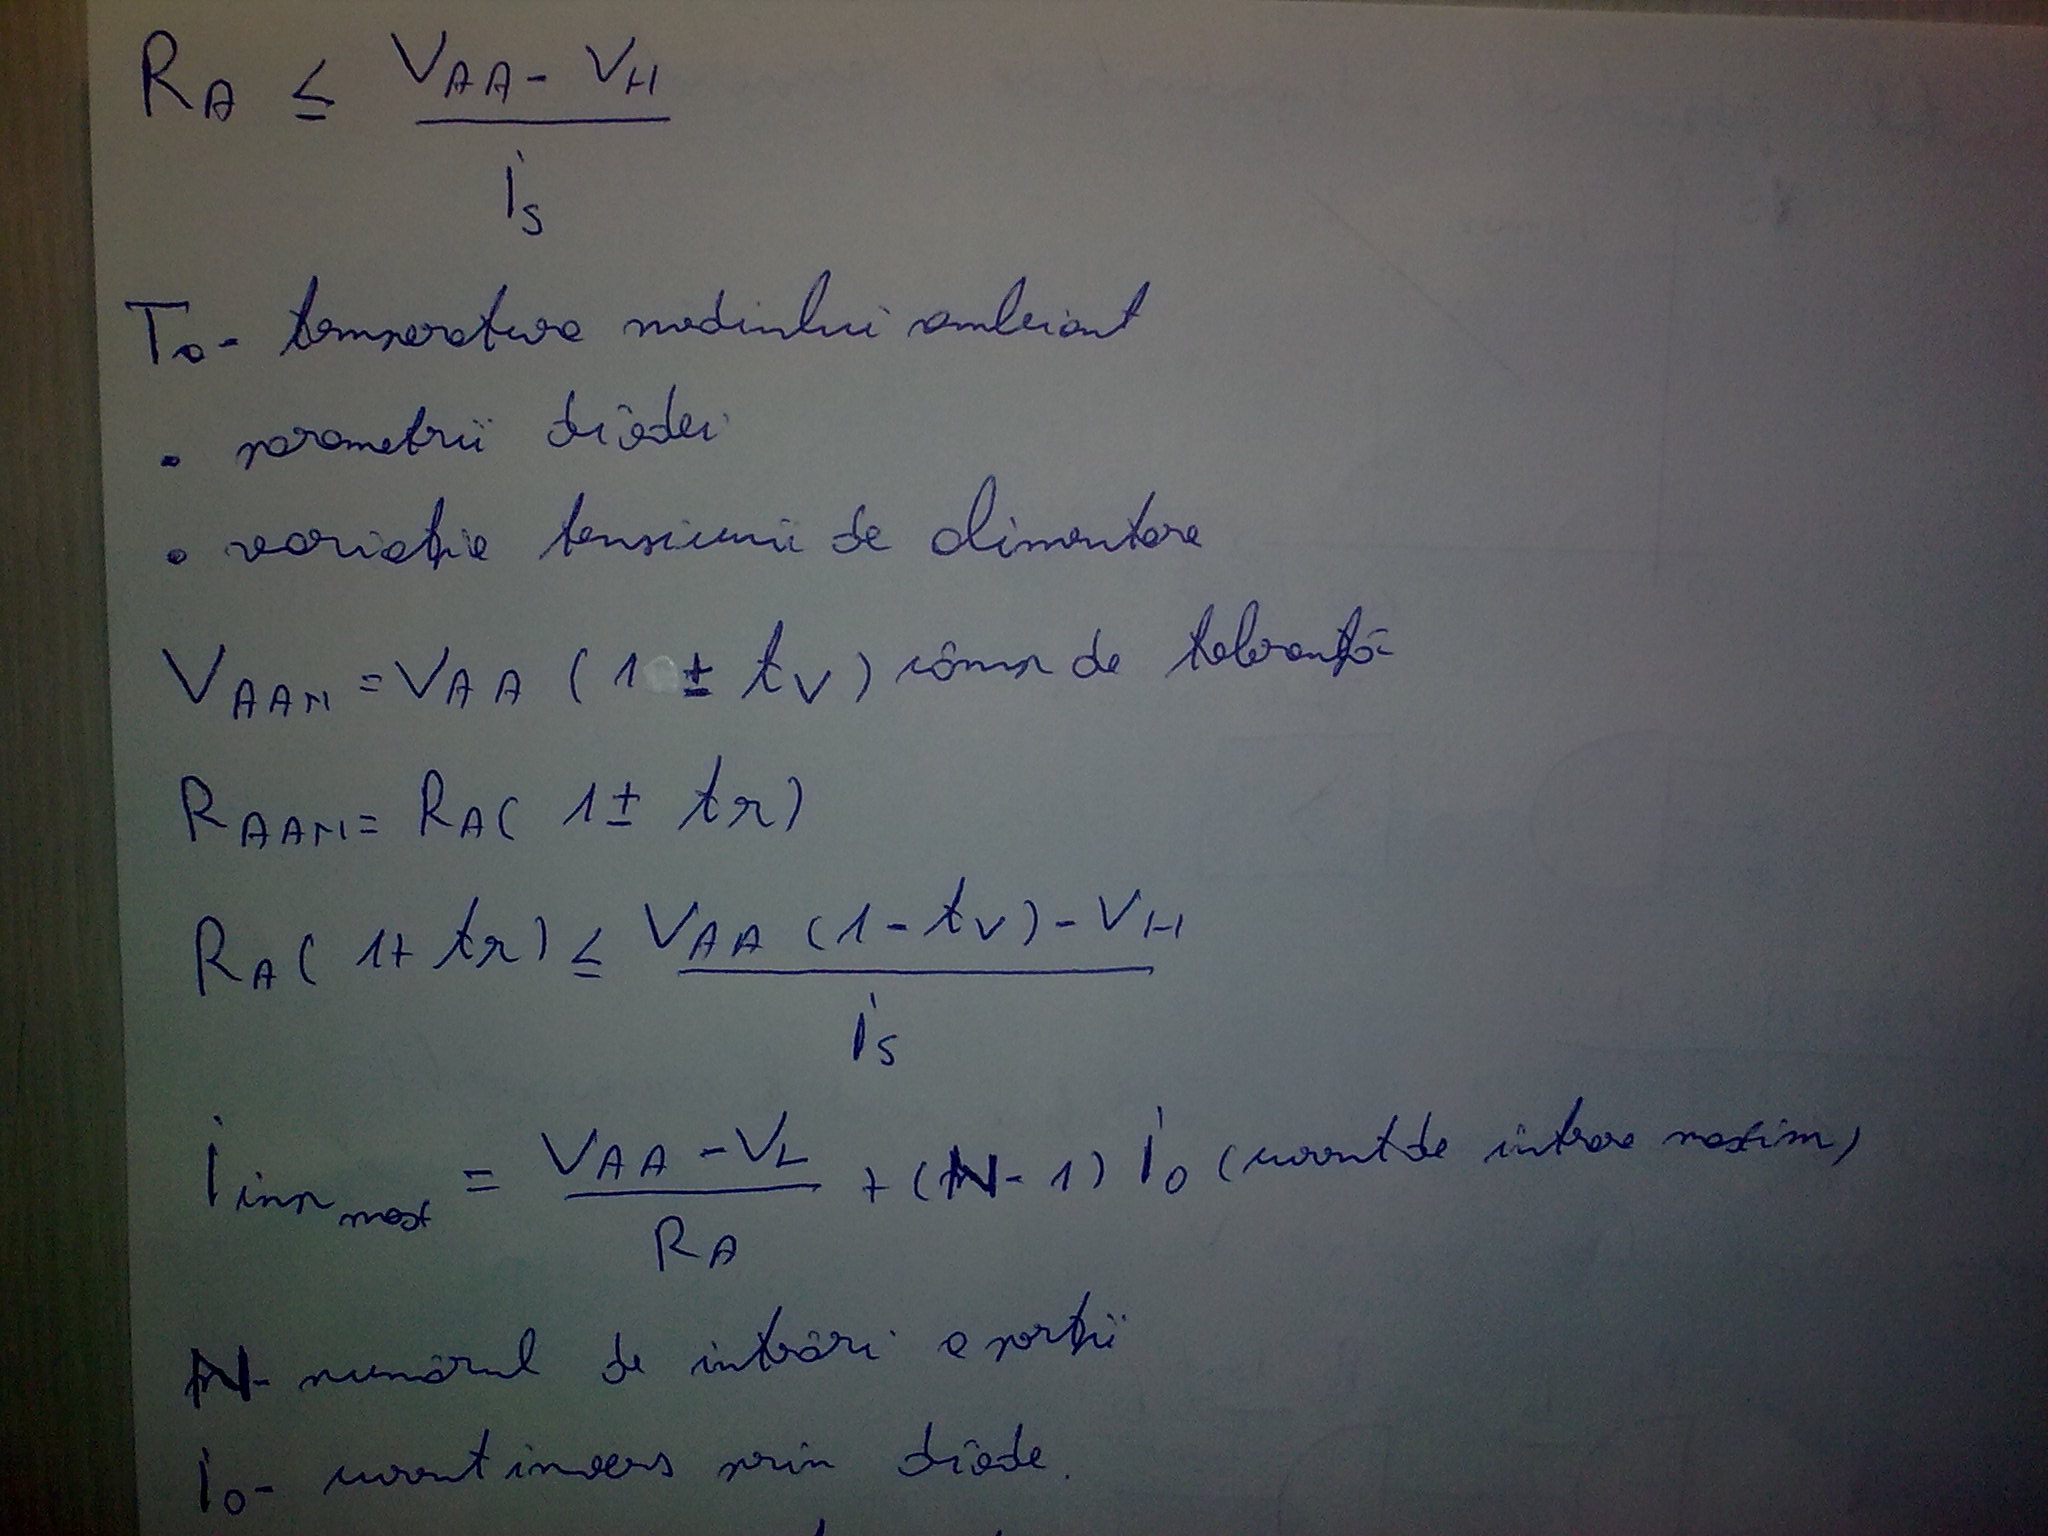 R_A ≤ (V_AA - V_H) / i_s
T_a - temperatura mediului ambiant
• parametrii diodei
• variația tensiunii de alimentare
V_AAM = V_AA (1 ± t_V) câmp de toleranță
R_AAM = R_A (1 ± tr)
R_A (1 + tr) ≤ (V_AA (1 - t_V) - V_H) / i_s
i_inp max = (V_AA - V_L) / R_A + (N - 1) i_0 (curent de intrare maxim)
N - numărul de intrări a porții
i_0 - curent invers prin diode.